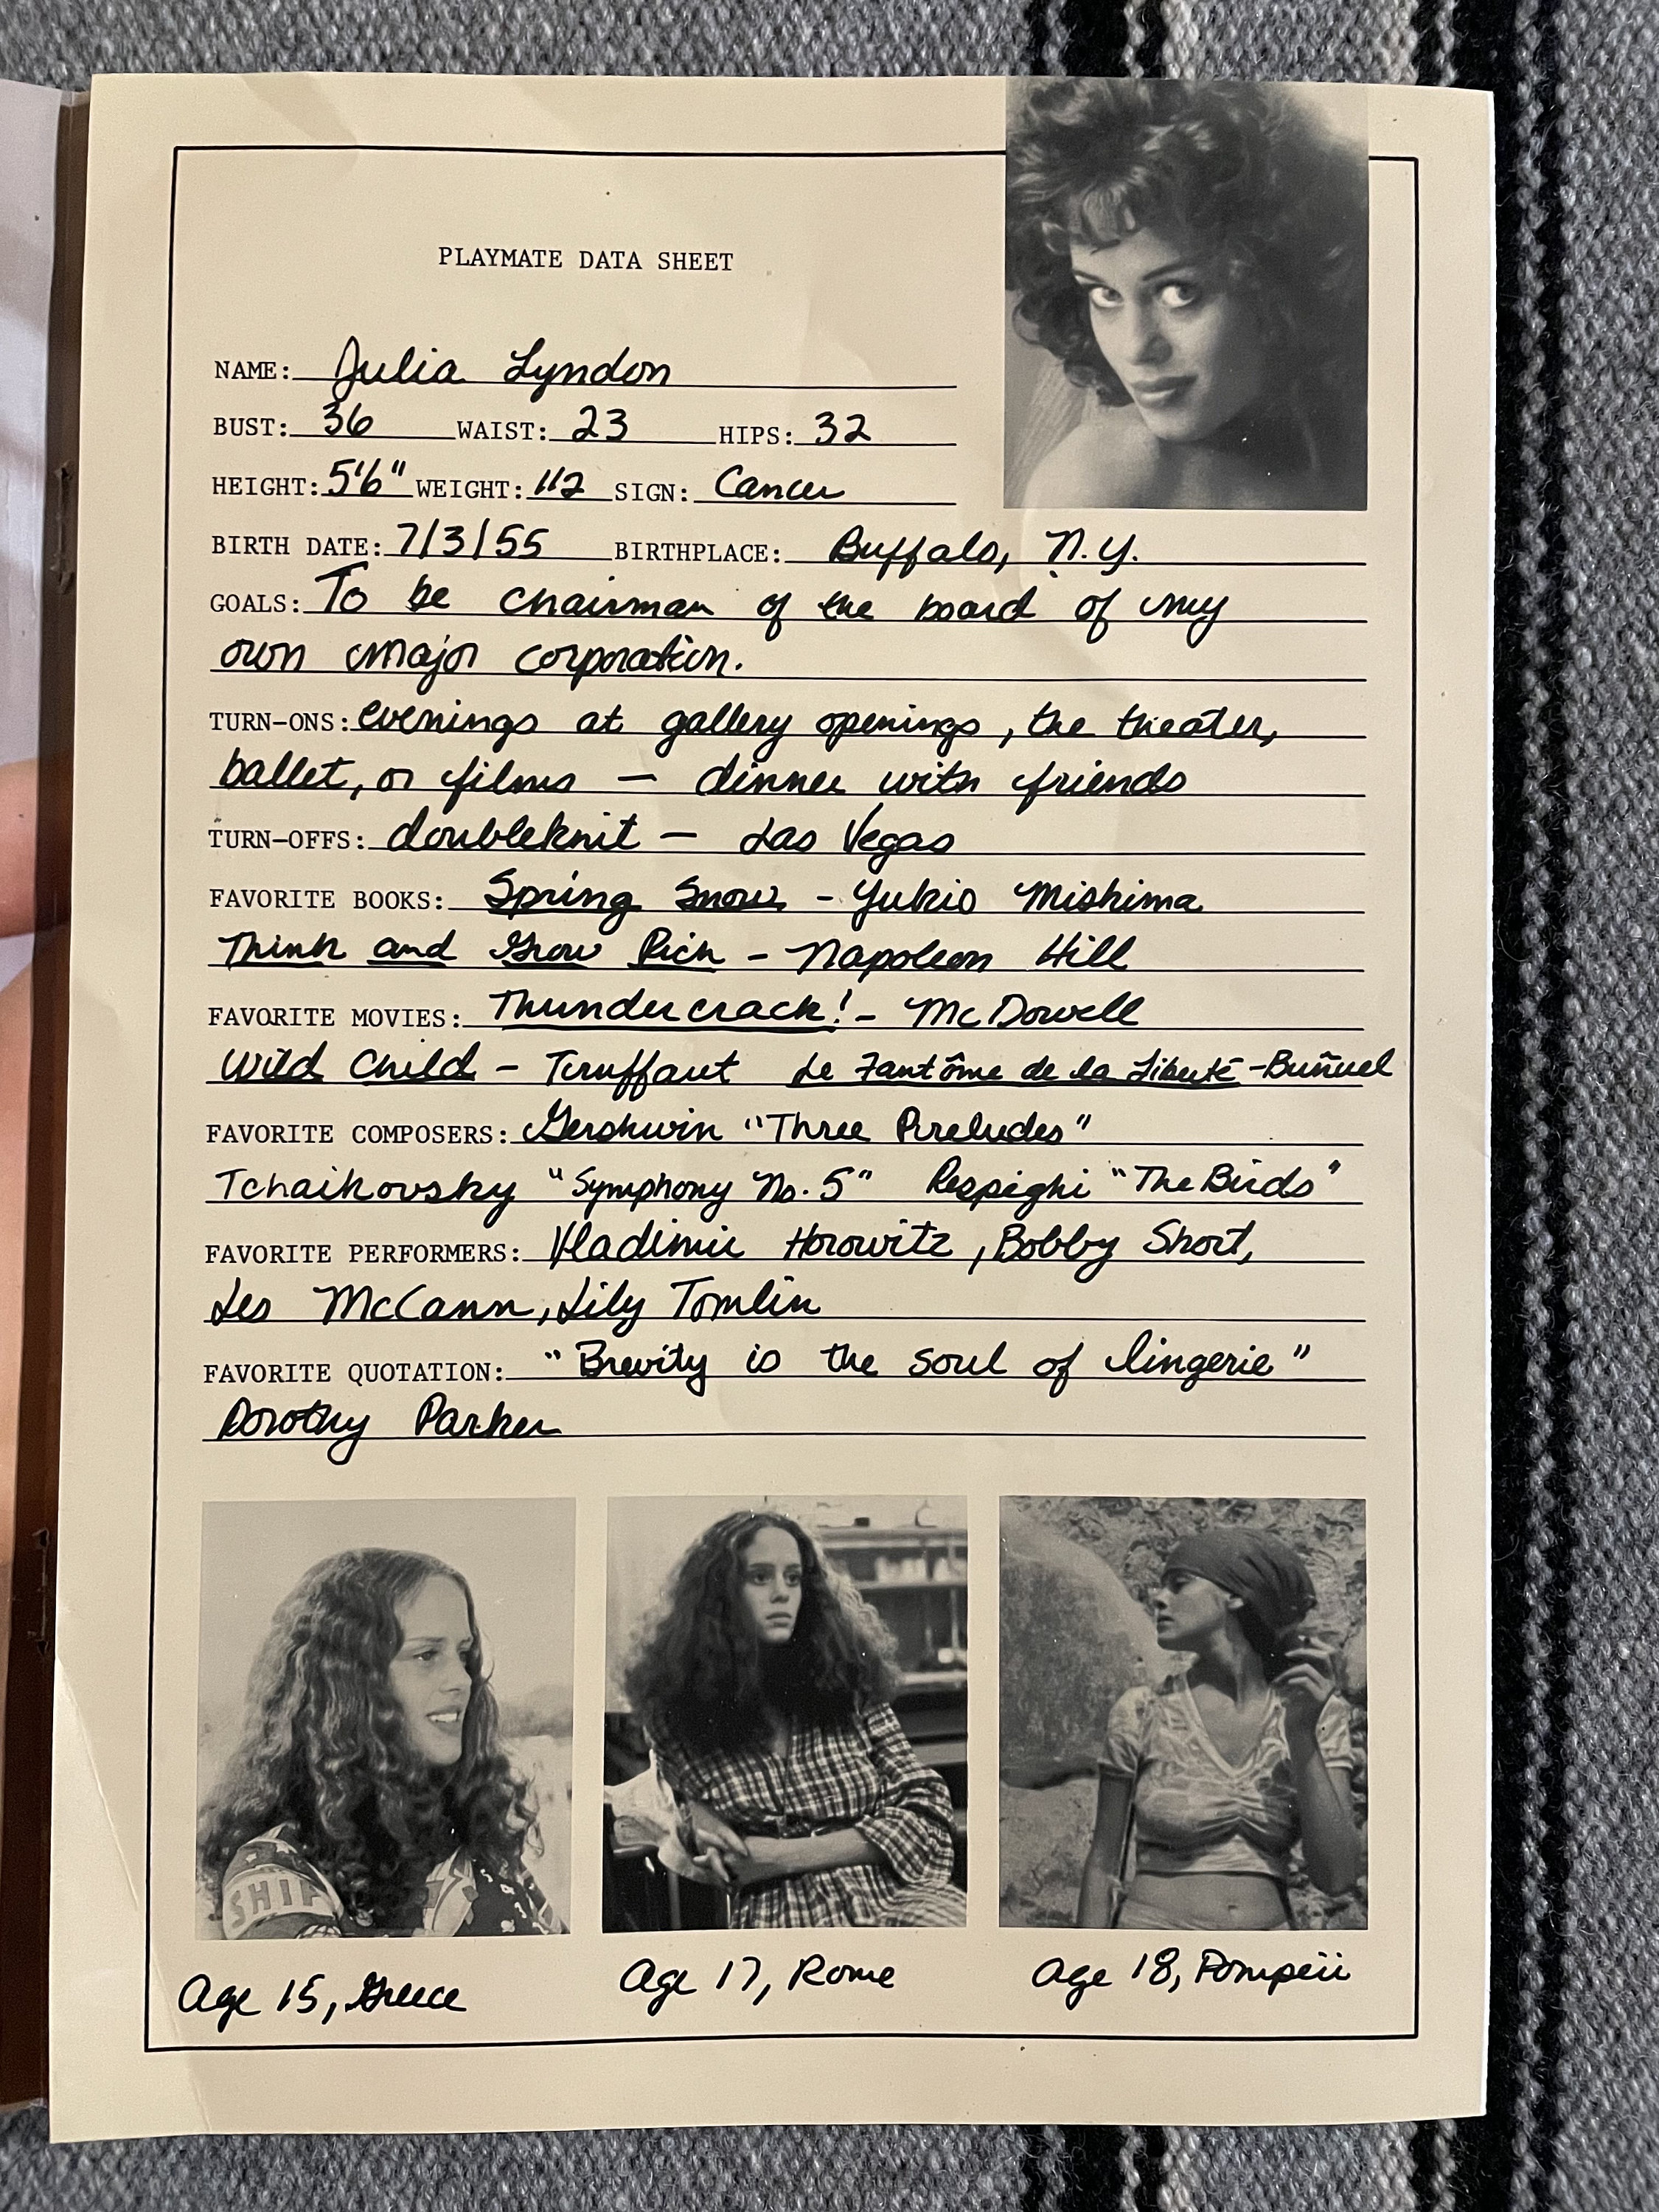 PLAYMATE DATA SHEET
NAME: Julia Lyndon
BUST: 36 WAIST: 23 HIPS: 32
HEIGHT: 5'6" WEIGHT: 112 SIGN: Cancer
BIRTH DATE: 7/3/55 BIRTHPLACE: Buffalo, N.Y.
GOALS: To be chairman of the board of my
own major corporation.
TURN-ONS: evenings at gallery openings, the theater,
ballet, or films — dinner with friends
TURN-OFFS: doubleknit — Las Vegas
FAVORITE BOOKS: Spring Snow - Yukio Mishima
Think and Grow Rich - Napoleon Hill
FAVORITE MOVIES: Thundercrack! - McDowell
Wild Child - Truffaut Le Fantôme de la Liberté - Buñuel
FAVORITE COMPOSERS: Gershwin "Three Preludes"
Tchaikovsky "Symphony No. 5" Respighi "The Birds"
FAVORITE PERFORMERS: Vladimir Horowitz, Bobby Short,
Les McCann, Lily Tomlin
FAVORITE QUOTATION: "Brevity is the soul of lingerie"
Dorothy Parker
SHIP
Age 15, Greece
Age 17, Rome
Age 18, Pompeii